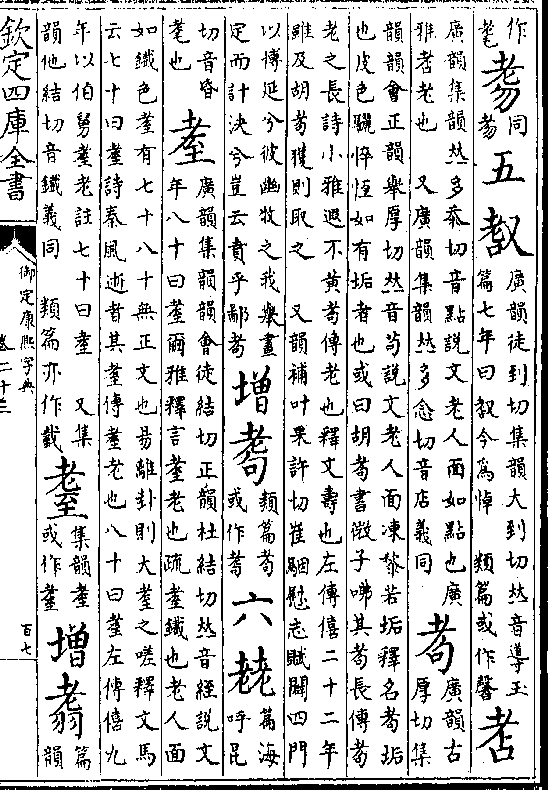 作
同
五
廣韻徒到切集韻大到切𠀤音導玉
篇七年曰 今爲悼 類篇或作
廣韻集韻𠀤多忝切音點説文老人面如點也廣
雅 老也 又廣韻集韻𠀤多念切音店義同
耇
廣韻古
厚切集
韻韻會正韻舉厚切𠀤音苟説文老人面凍黎若垢釋名耇垢
也皮色驪悴恒如有垢者也或曰胡耇書微子咈其耇長傳耇
老之長詩小雅遐不黄耇傳老也釋文壽也左傳僖二十二年
雖及胡耇獲則取之 又韻補叶果許切崔駰慰志賦闢四門
以博延兮彼幽牧之我舉畫
定而計決兮豈云賁乎鄙耇
增
類篇耇
或作
六
篇海
呼昆
切音昏
耄也
耋
廣韻集韻韻會徒結切正韻杜結切𠀤音絰説文
年八十曰耋爾雅釋言耋老也疏耋鐵也老人面
如鐵色耋有七十八十無正文也易離卦則大耋之嗟釋文馬
云七十曰耋詩秦風逝者其耋傳耋老也八十曰耋左傳僖九
年以伯舅耋老註七十曰耋 又集
韻他結切音鐵義同 類篇亦作
集韻耋
或作
增
篇
韻
欽定四庫全書
御定康熙字典
卷二十三
百七